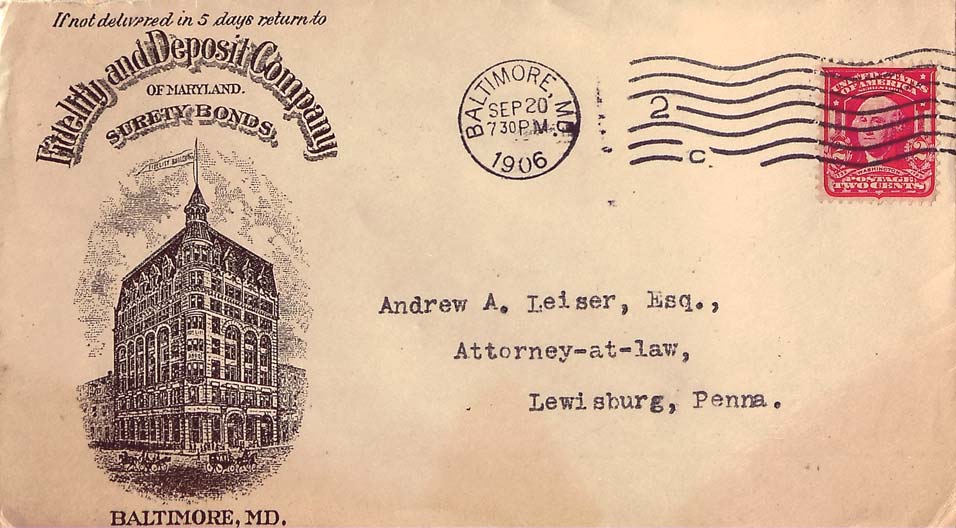 If not delivered in 5 days return to
Fidelity and Deposit Company
OF MARYLAND.
SURETY BONDS.
FIDELITY BUILDING
BALTIMORE, MD.
BALTIMORE, MD.
SEP 20
730 P.M.
1906
2
C.
UNITED STATES
OF AMERICA
WASHINGTON
POSTAGE
2
TWO CENTS
Andrew A. Leiser, Esq.,
Attorney-at-law,
Lewisburg, Penna.